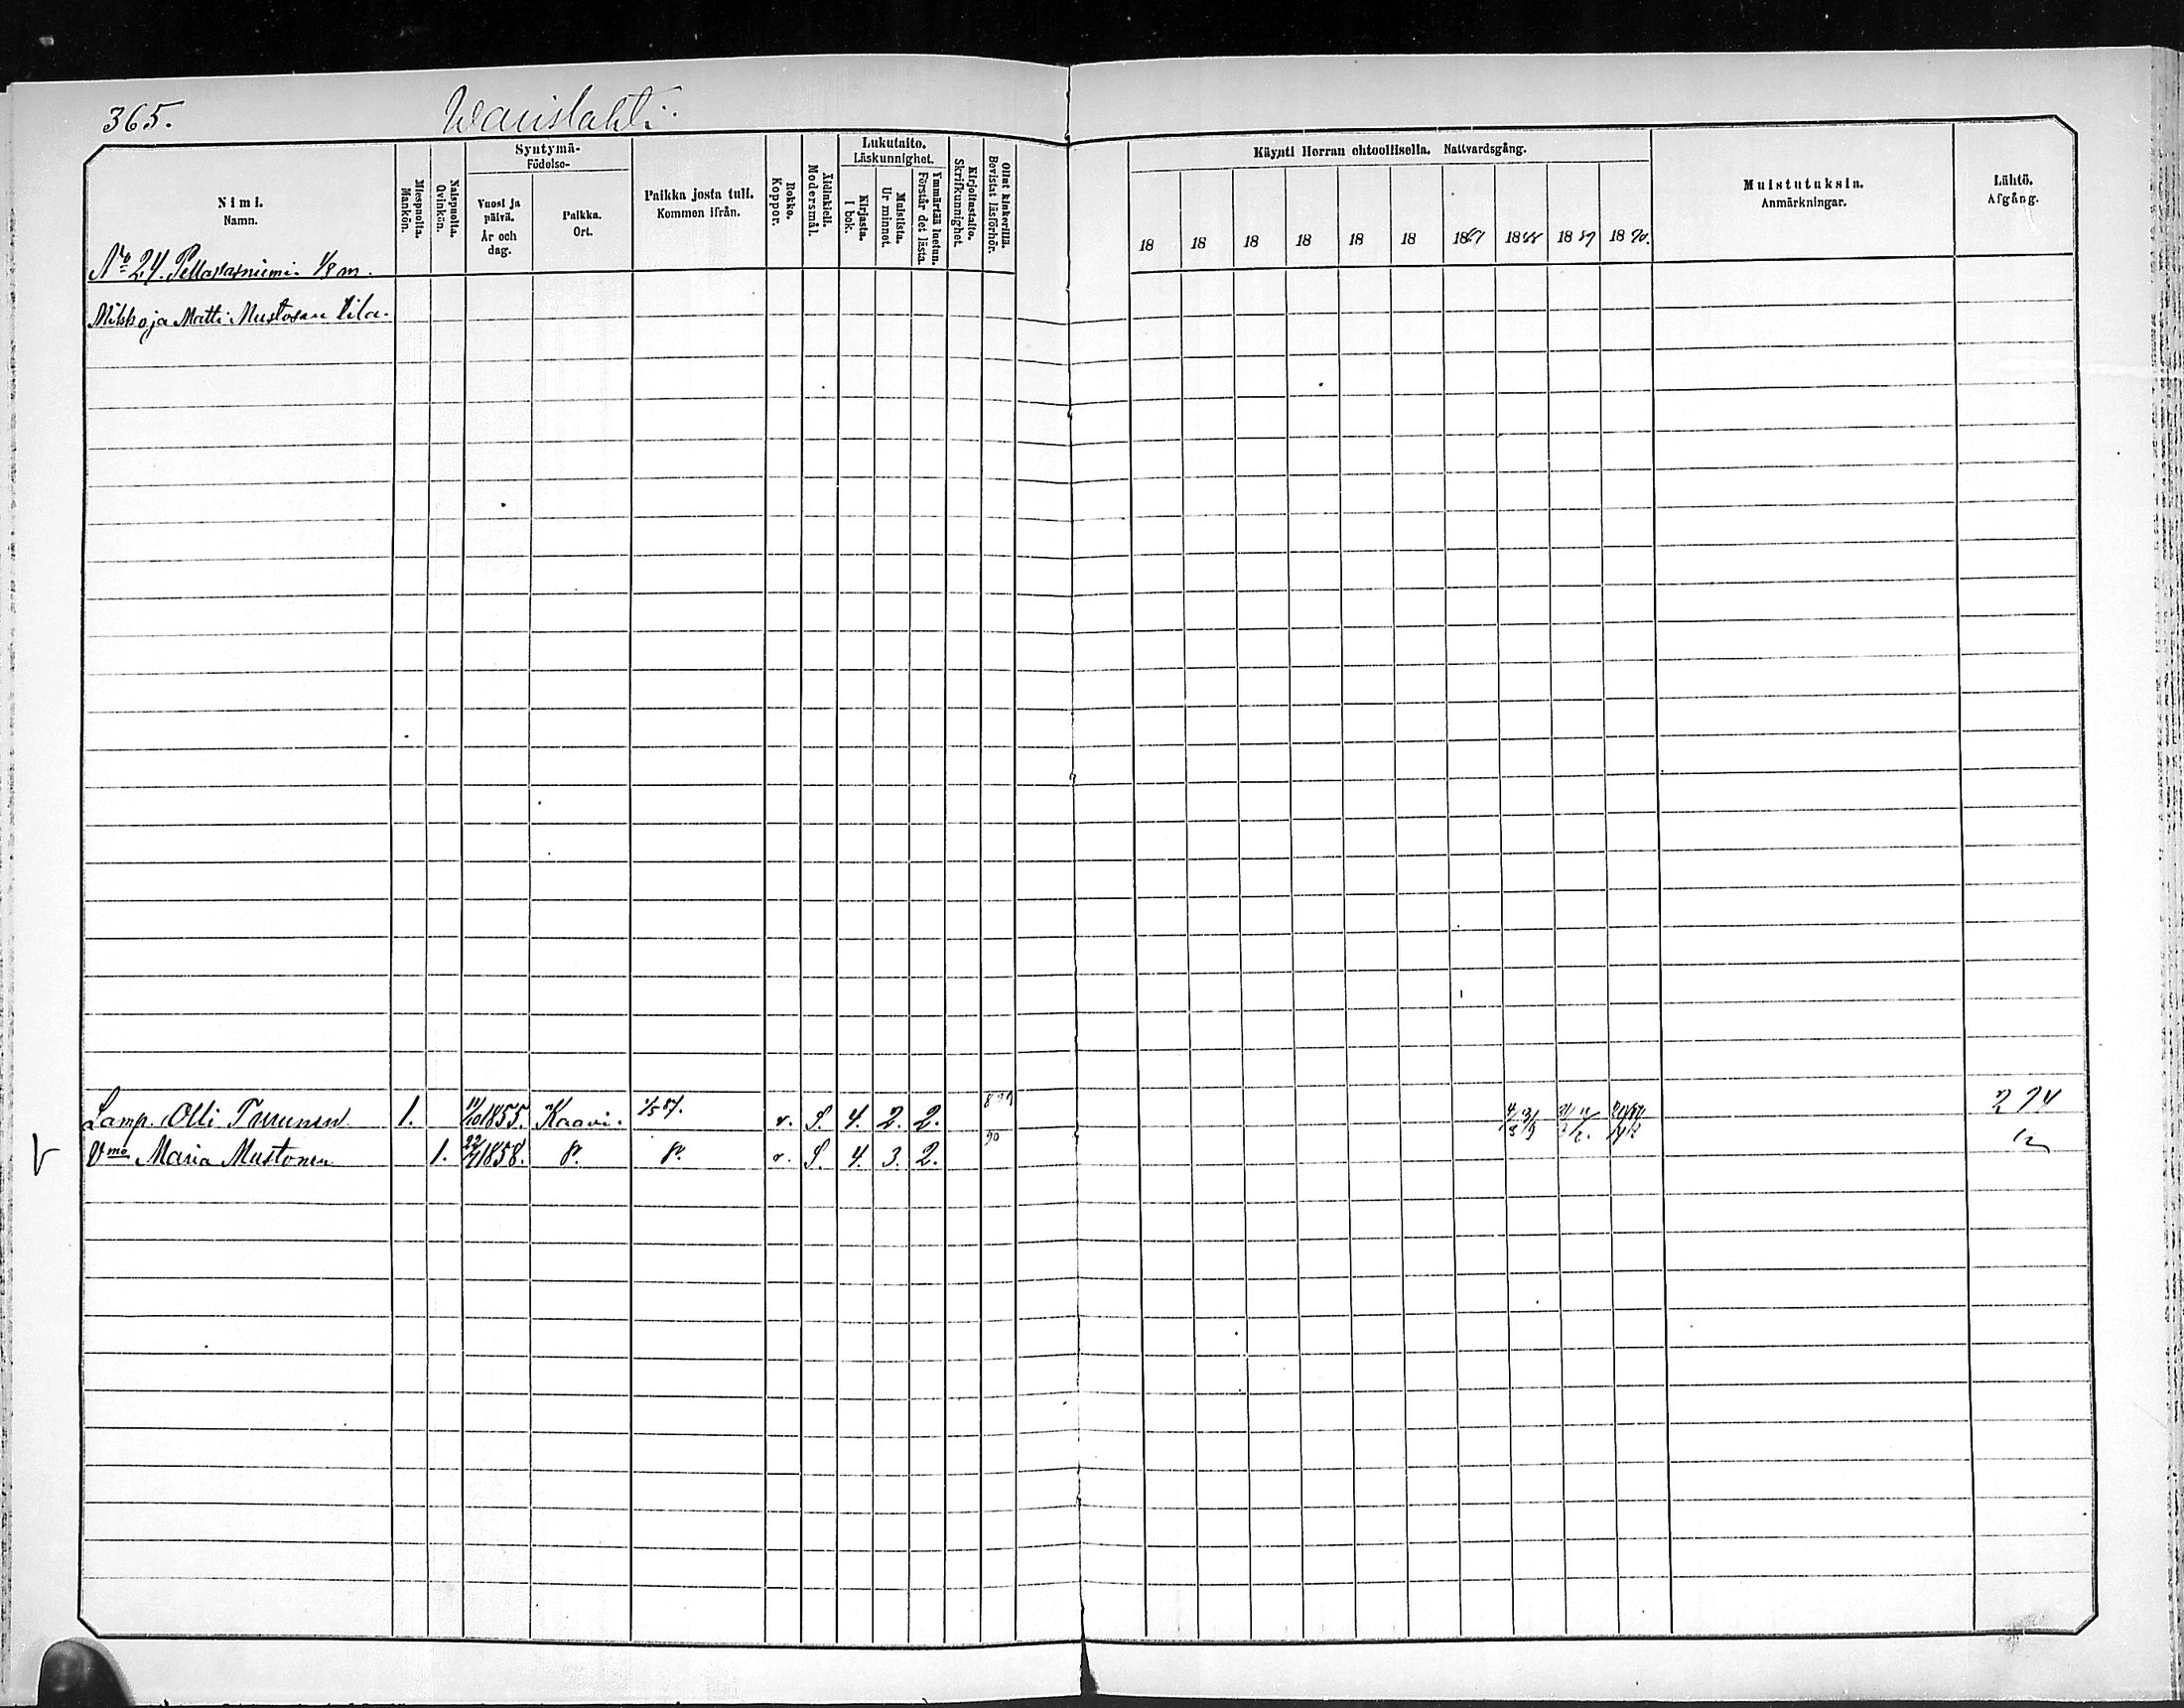 365. Wauislahti.
Nimi.
Namn.
Miespuolta.
Mankön.
Naispuolta.
Qvinkön.
Syntymä-
Födelse-
Vuosi ja päivä.
År och dag.
Paikka.
Ort.
Paikka josta tuli.
Kommen ifrån.
Rokko.
Koppor.
Äidinkieli.
Modersmål.
Lukutaito.
Läskunnighet.
Kirjasta.
I bok.
Muistista.
Ur minnet.
Ymmärtää luetun.
Förstår det lästa.
Kirjoitustaito.
Skrifkunnighet.
Ollut kinkerillä.
Bevistat läsförhör.
Käynti Herran ehtoollisella. Nattvardsgång.
18 18 18 18 18 18 1887 1888 1889 1890.
Muistutuksia.
Anmärkningar.
Lähtö.
Afgång.
No 24. 1/8 m.
Mikko ja Matti Mustosen tila.
Lamp. Olli Turunen 1. 11/10 1855. Kaavi. 1/5 87. r. S. 4. 2. 2. 274
Vmo Maria Mustonen 1. 1858. r. S. 4. 3. 2. 90